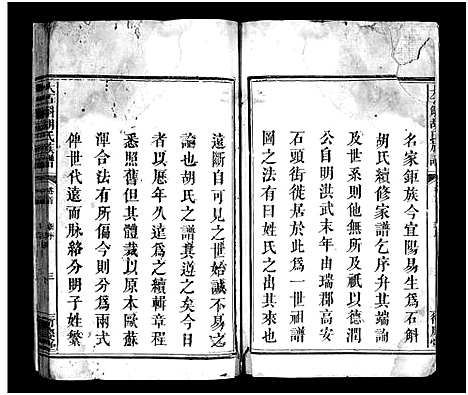 名家鉅族今宜陽易生爲石斛
胡氏續修家譜乞序弁其端諭
及世系則他無所及祇以德潤
公自明洪武末年由瑞郡高安
石頭街徙居於此爲一世譜
圖之法有曰姓氏之出其來也
遠斷自可見之世始誠不易之
論也胡氏之譜其道之矣今日
者以歷年久遠爲之續輯章程
悉照舊但其體裁以原本歐蘇
渾合法有所傷今則分爲兩式
俾世代遠而脈絡分明子姓繁
三